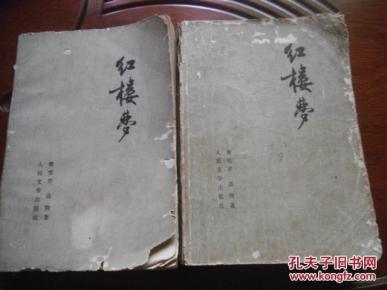 红楼梦
曹雪芹 高鹗著
人民文学出版社
红楼梦
曹雪芹 高鹗著
人民文学出版社
孔夫子旧书网